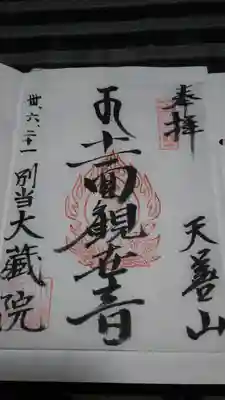 奉拝
天善山
十一面觀世音
卅、六、二十一
別当大蔵院